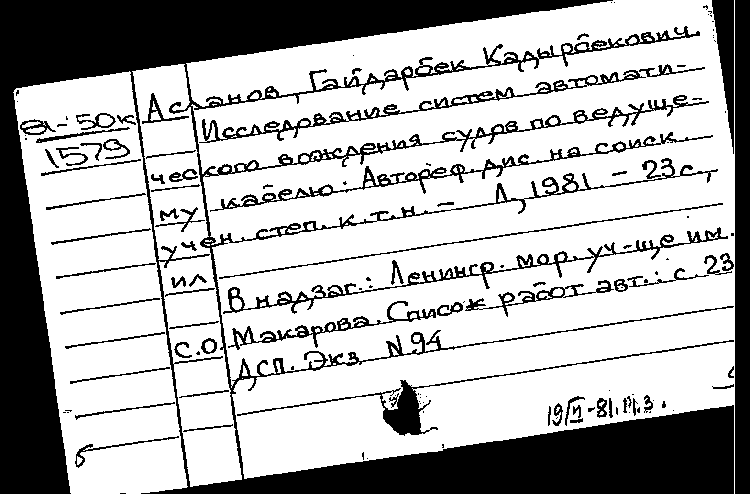 81-50к
1579
Асланов, Гайдарбек Кадырбекович.
Исследование систем автомати-
ческого вождения судов по ведуще-
му кабелю: Автореф. дис. на соиск.
учен. степ. к.т.н. - Л, 1981. - 23 с.,
ил
В надзаг.: Ленингр. мор. уч-ще им.
С.О. Макарова. Список работ авт.: с. 23
ДСП. Экз N 94